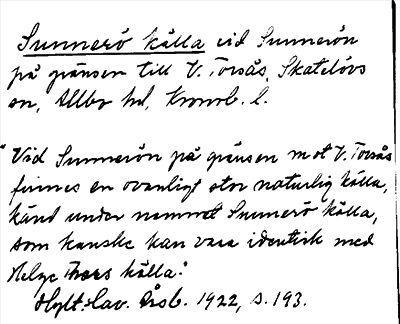 Sunnerö källa vid Sunnerön
på gränsen till V. Torsås, Skatelövs
sn, Allbo hd, Kronob. l.
"Vid Sunnerön på gränsen mot V. Torsås
finnes en ovanligt stor naturlig källa,
känd under namnet Sunnerö källa,
som kanske kan vara identisk med
Helge källa."
Hylt.-Cav. Årsb. 1922, s. 193.